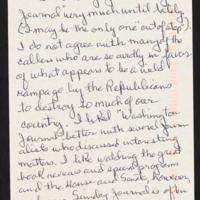 Journal" very much until lately
(I may be the only one "out of step").
I do not agree with many of the
callers who are so avidly in favor
of what appears to be a wild
rampage by the Republicans
to destroy so much of our
country. I liked "Washington
Journal" better with several journ-
alists who discussed interesting
matters. I like watching the great
book reviews and special programs
and the House and Senate. However,
Sunday Journal is often